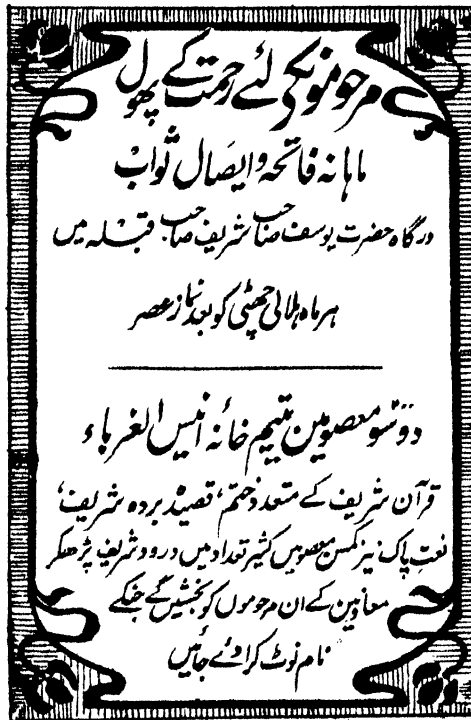 مرحومونکے لئے رحمت کے پھول
ماہانہ فاتحہ و ایصال ثواب
درگاہ حضرت یوسف صاحب شریف صاحب قبلہ میں
ہر ماہ ہلالی چھٹی کو بعد نماز عصر
دو سو معصومین یتیم خانہ انیس الغرباء
قرآن شریف کے متعدد ختم، قصیدہ بردہ شریف،
نعت پاک نیز کمسن معصومیں کثیر تعداد میں درود شریف پڑھکر
معاونین کے ان مرحوموں کو بخشیں گے جنکے
نام نوٹ کرا دئے جائیں